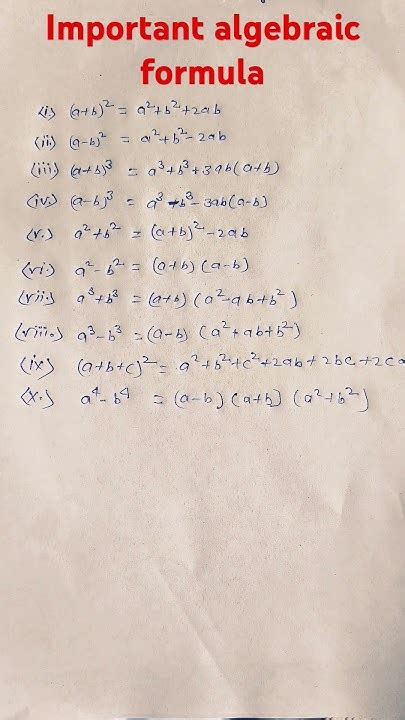 Important algebraic
formula
(i) (a+b)² = a²+b²+2ab
(ii) (a-b)² = a²+b²-2ab
(iii) (a+b)³ = a³+b³+3ab(a+b)
(iv.) (a-b)³ = a³-b³-3ab(a-b)
(v.) a²+b² = (a+b)²-2ab
(vi.) a²-b² = (a+b) (a-b)
(vii.) a³+b³ = (a+b) (a²-ab+b²)
(viii.) a³-b³ = (a-b) (a²+ab+b²)
(ix) (a+b+c)² = a²+b²+c²+2ab+2bc+2ca
(x.) a⁴-b⁴ = (a-b) (a+b) (a²+b²)